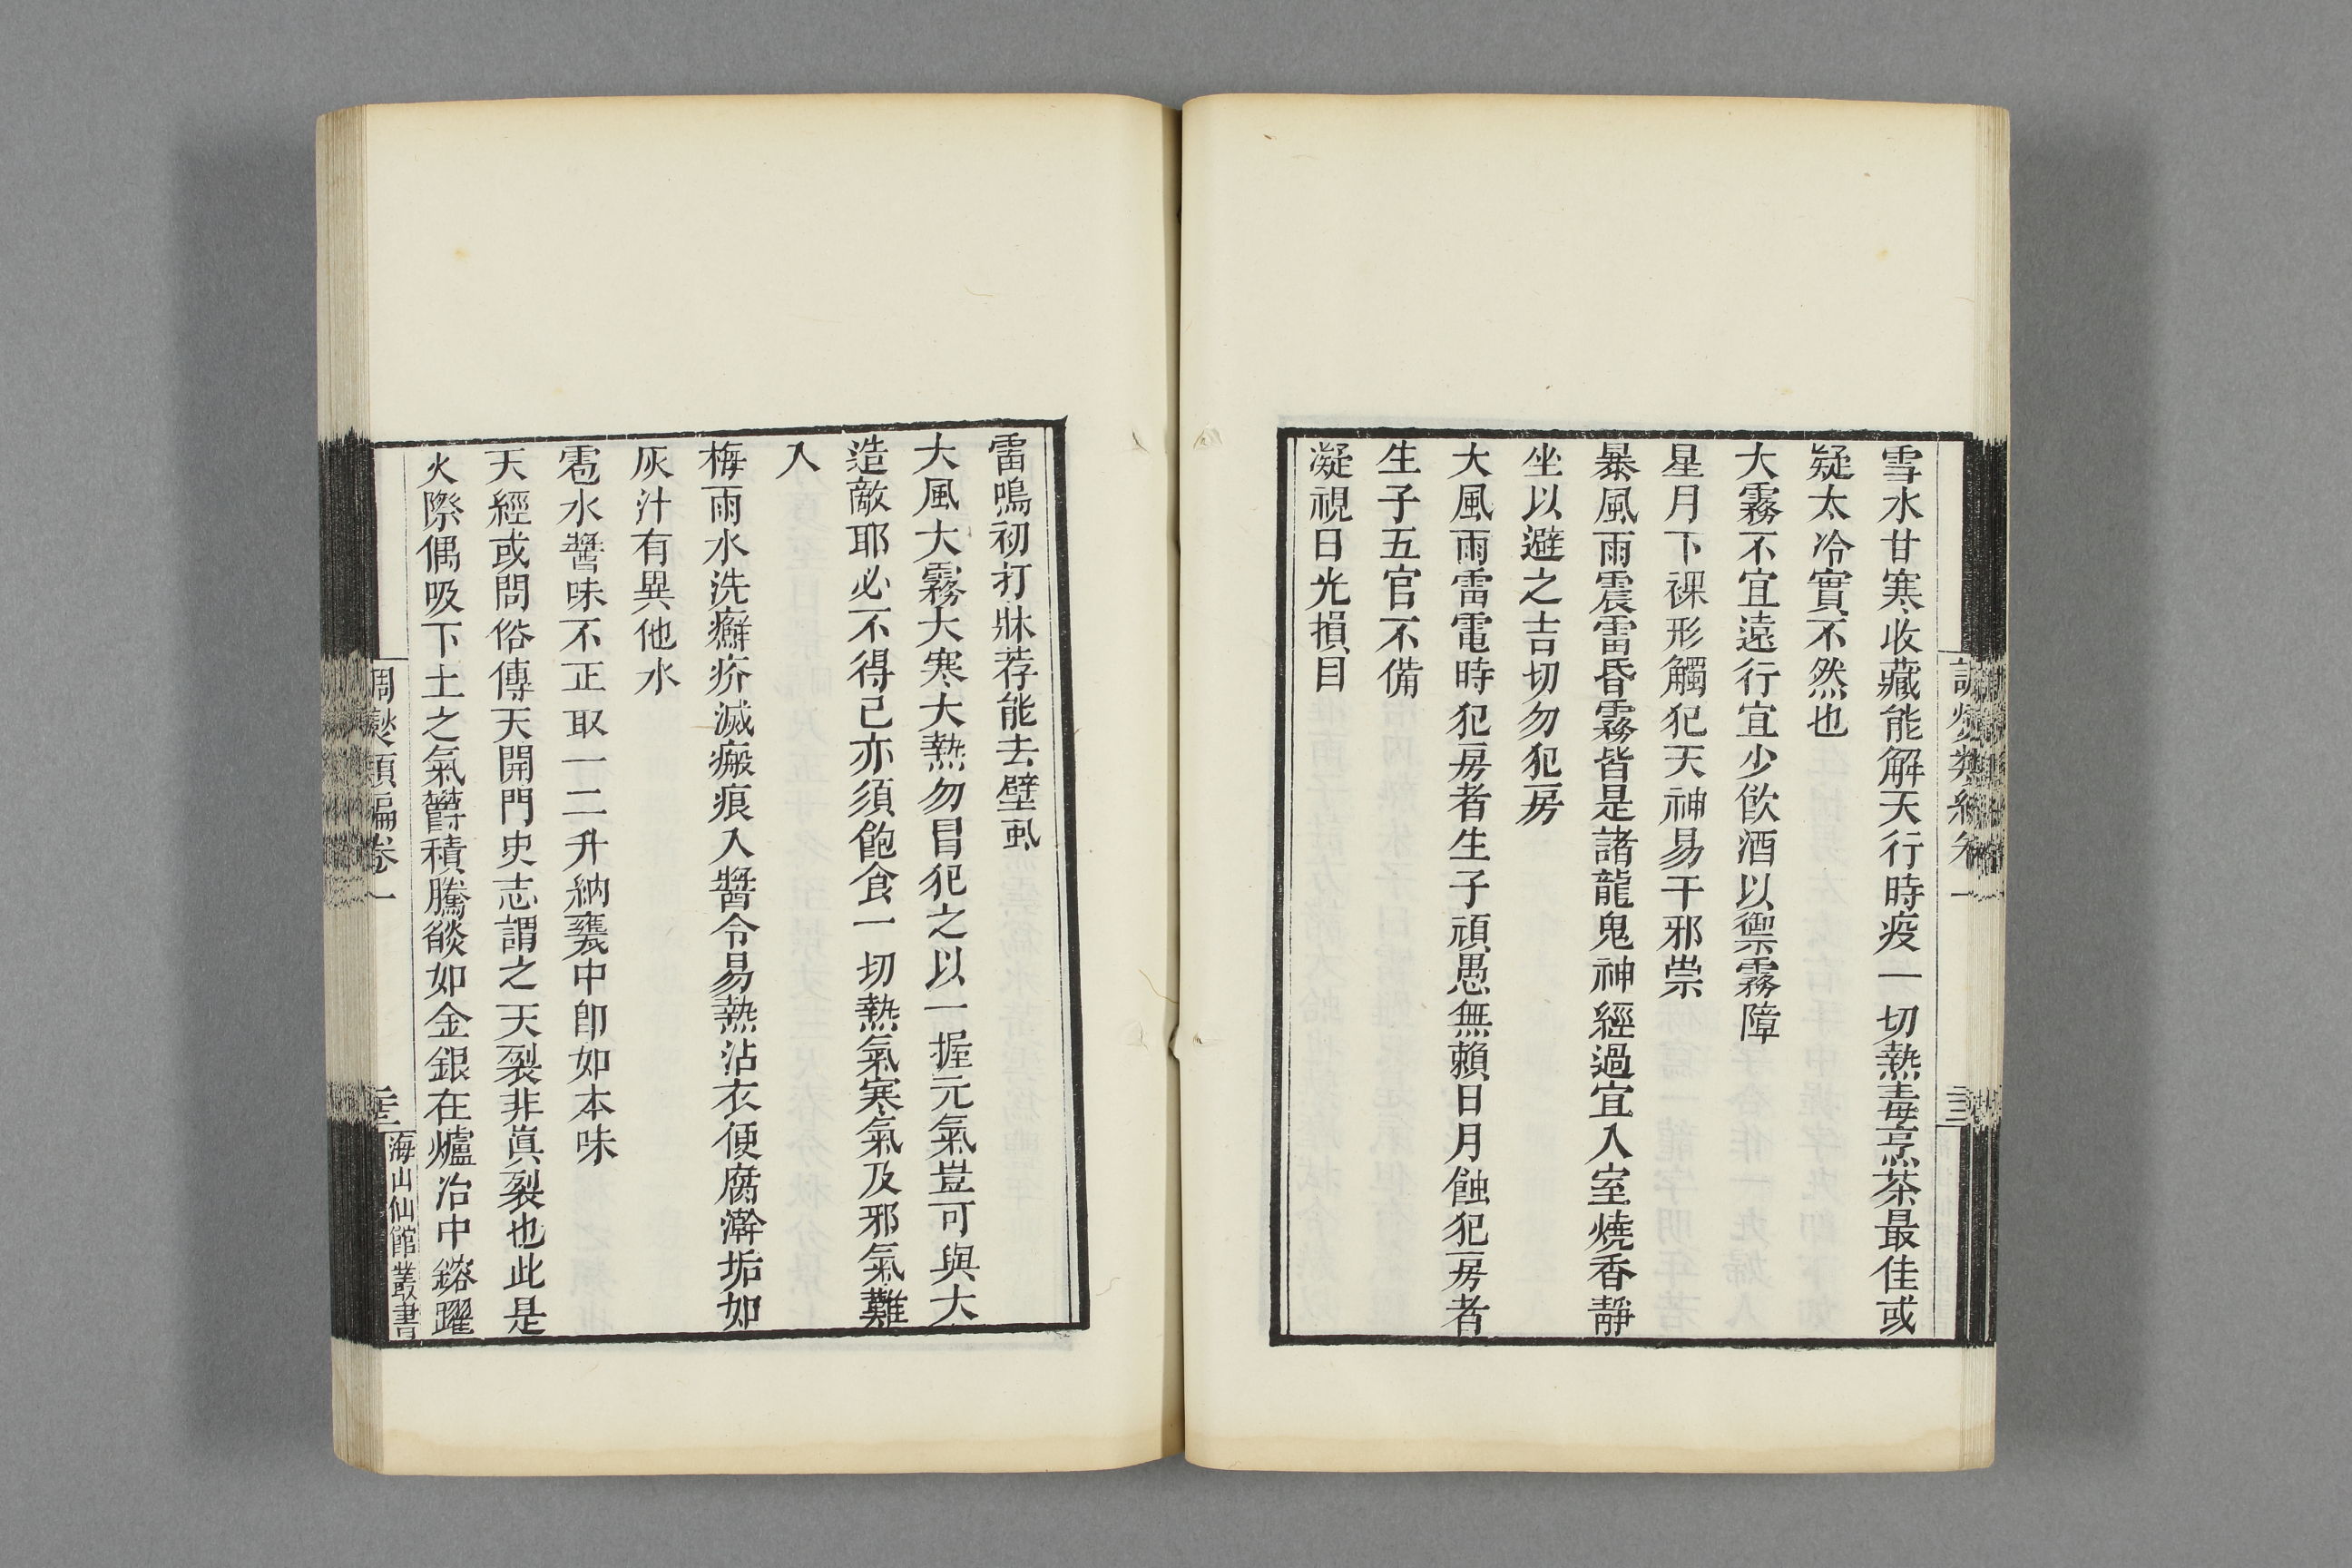 雪水甘寒收藏能解天行時疫一切熱毒烹茶最佳或
疑太冷實不然也
大霧不宜遠行宜少飲酒以禦霧障
星月下裸形觸犯天神易干邪祟
暴風雨震雷昏霧皆是諸龍鬼神經過宜入室燒香靜
坐以避之吉切勿犯房
大風雨雷電時犯房者生子頑愚無賴日月蝕犯房者
生子五官不備
凝視日光損目
雷鳴初打牀荐能去壁虱
大風大霧大寒大熱勿冒犯之以一握元氣豈可與大
造敵耶必不得已亦須飽食一切熱氣寒氣及邪氣難
入
梅雨水洗癬疥滅瘢痕入醬令易熱沾衣便腐澣垢如
灰汁有異他水
雹水醬味不正取一二升納甕中卽如本味
天經或問俗傳天開門史志謂之天裂非眞裂也此是
火際偶吸下土之氣鬱積騰燄如金銀在爐冶中鎔躍
調燮類編卷一
海山仙館叢書